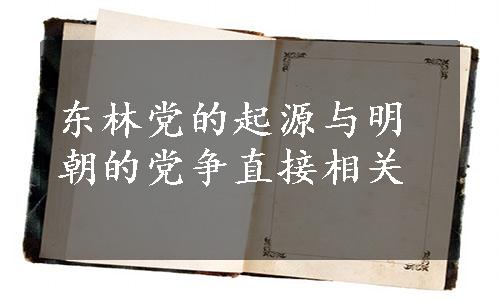 东林党的起源与明
朝的党争直接相关